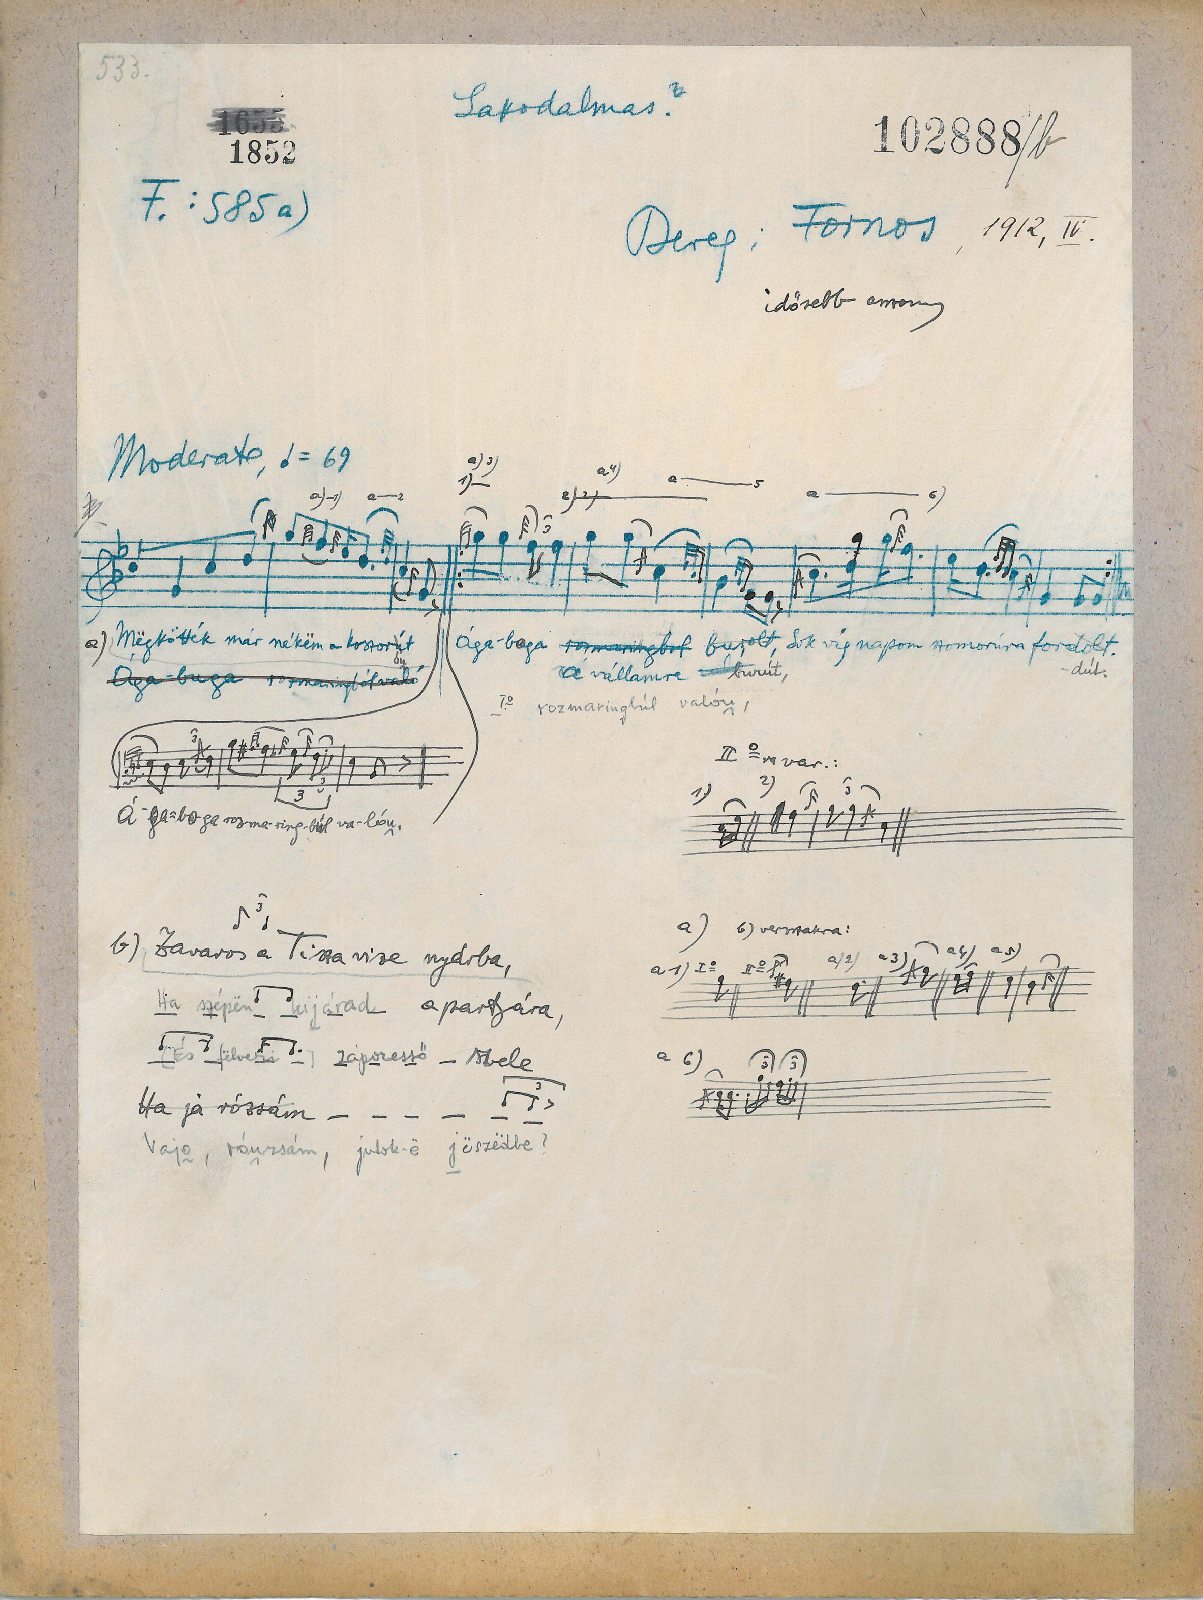 533.
Lakodalmas?
1852
102888/b
F.: 585a)
Bereg; Fornos, 1912, IV.
idősebb asszony
Moderato, ♩= 69
a)-1) a—2 a)3) 1)— 2) a4) a—5 a—6)
a) Mëgkötték már nékëm a koszorút Ága-boga rozmaringbol burolt, Sok víg napom szomorúra fordólt.
Ága-buga rozmaringból való À vállamre burút, dút.
I.º rozmaringbúl valóu̯,
Á-ga-boga rozma-ring-búl va-lóu̯.
II.º var.:
1) 2) 3
b) Zavaros a Tisza vize nydrba,
Ha szépën kijárad a partjára,
záporesső – vele
Ha já rózsám – – – – –
Vajo̯, róu̯zsám, jutok-ë jëszëdbe?
a) 6) versszakra:
a 1) Iº IIº a)2) a3) a4) a5)
a 6) 3 3